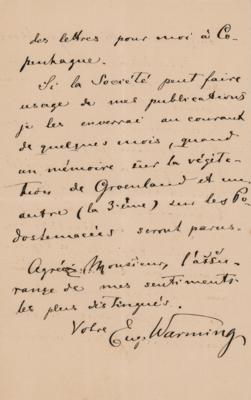 des lettres pour moi à Co-
penhague.
Si la Société peut faire
usage de mes publications
je les enverrai au courant
de quelques mois, quand
un mémoire sur la végéta-
tion de Groenland et un
autre (la 3ième) sur les Po-
dostemacées seront parus.
Agréez, Monsieur, l'assu-
rance de mes sentiments
les plus distingués.
Votre Eug. Warming